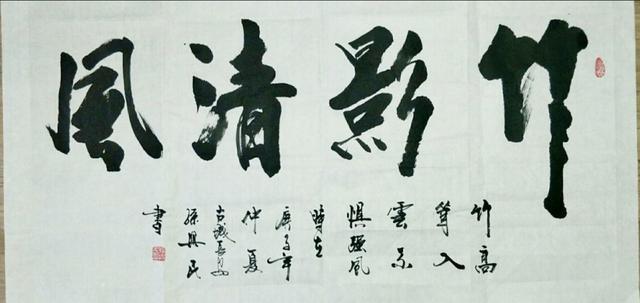 竹影清風
竹高
入
雲不
懼强風
時在
庚子年
仲夏
古城長安
孫興民
書